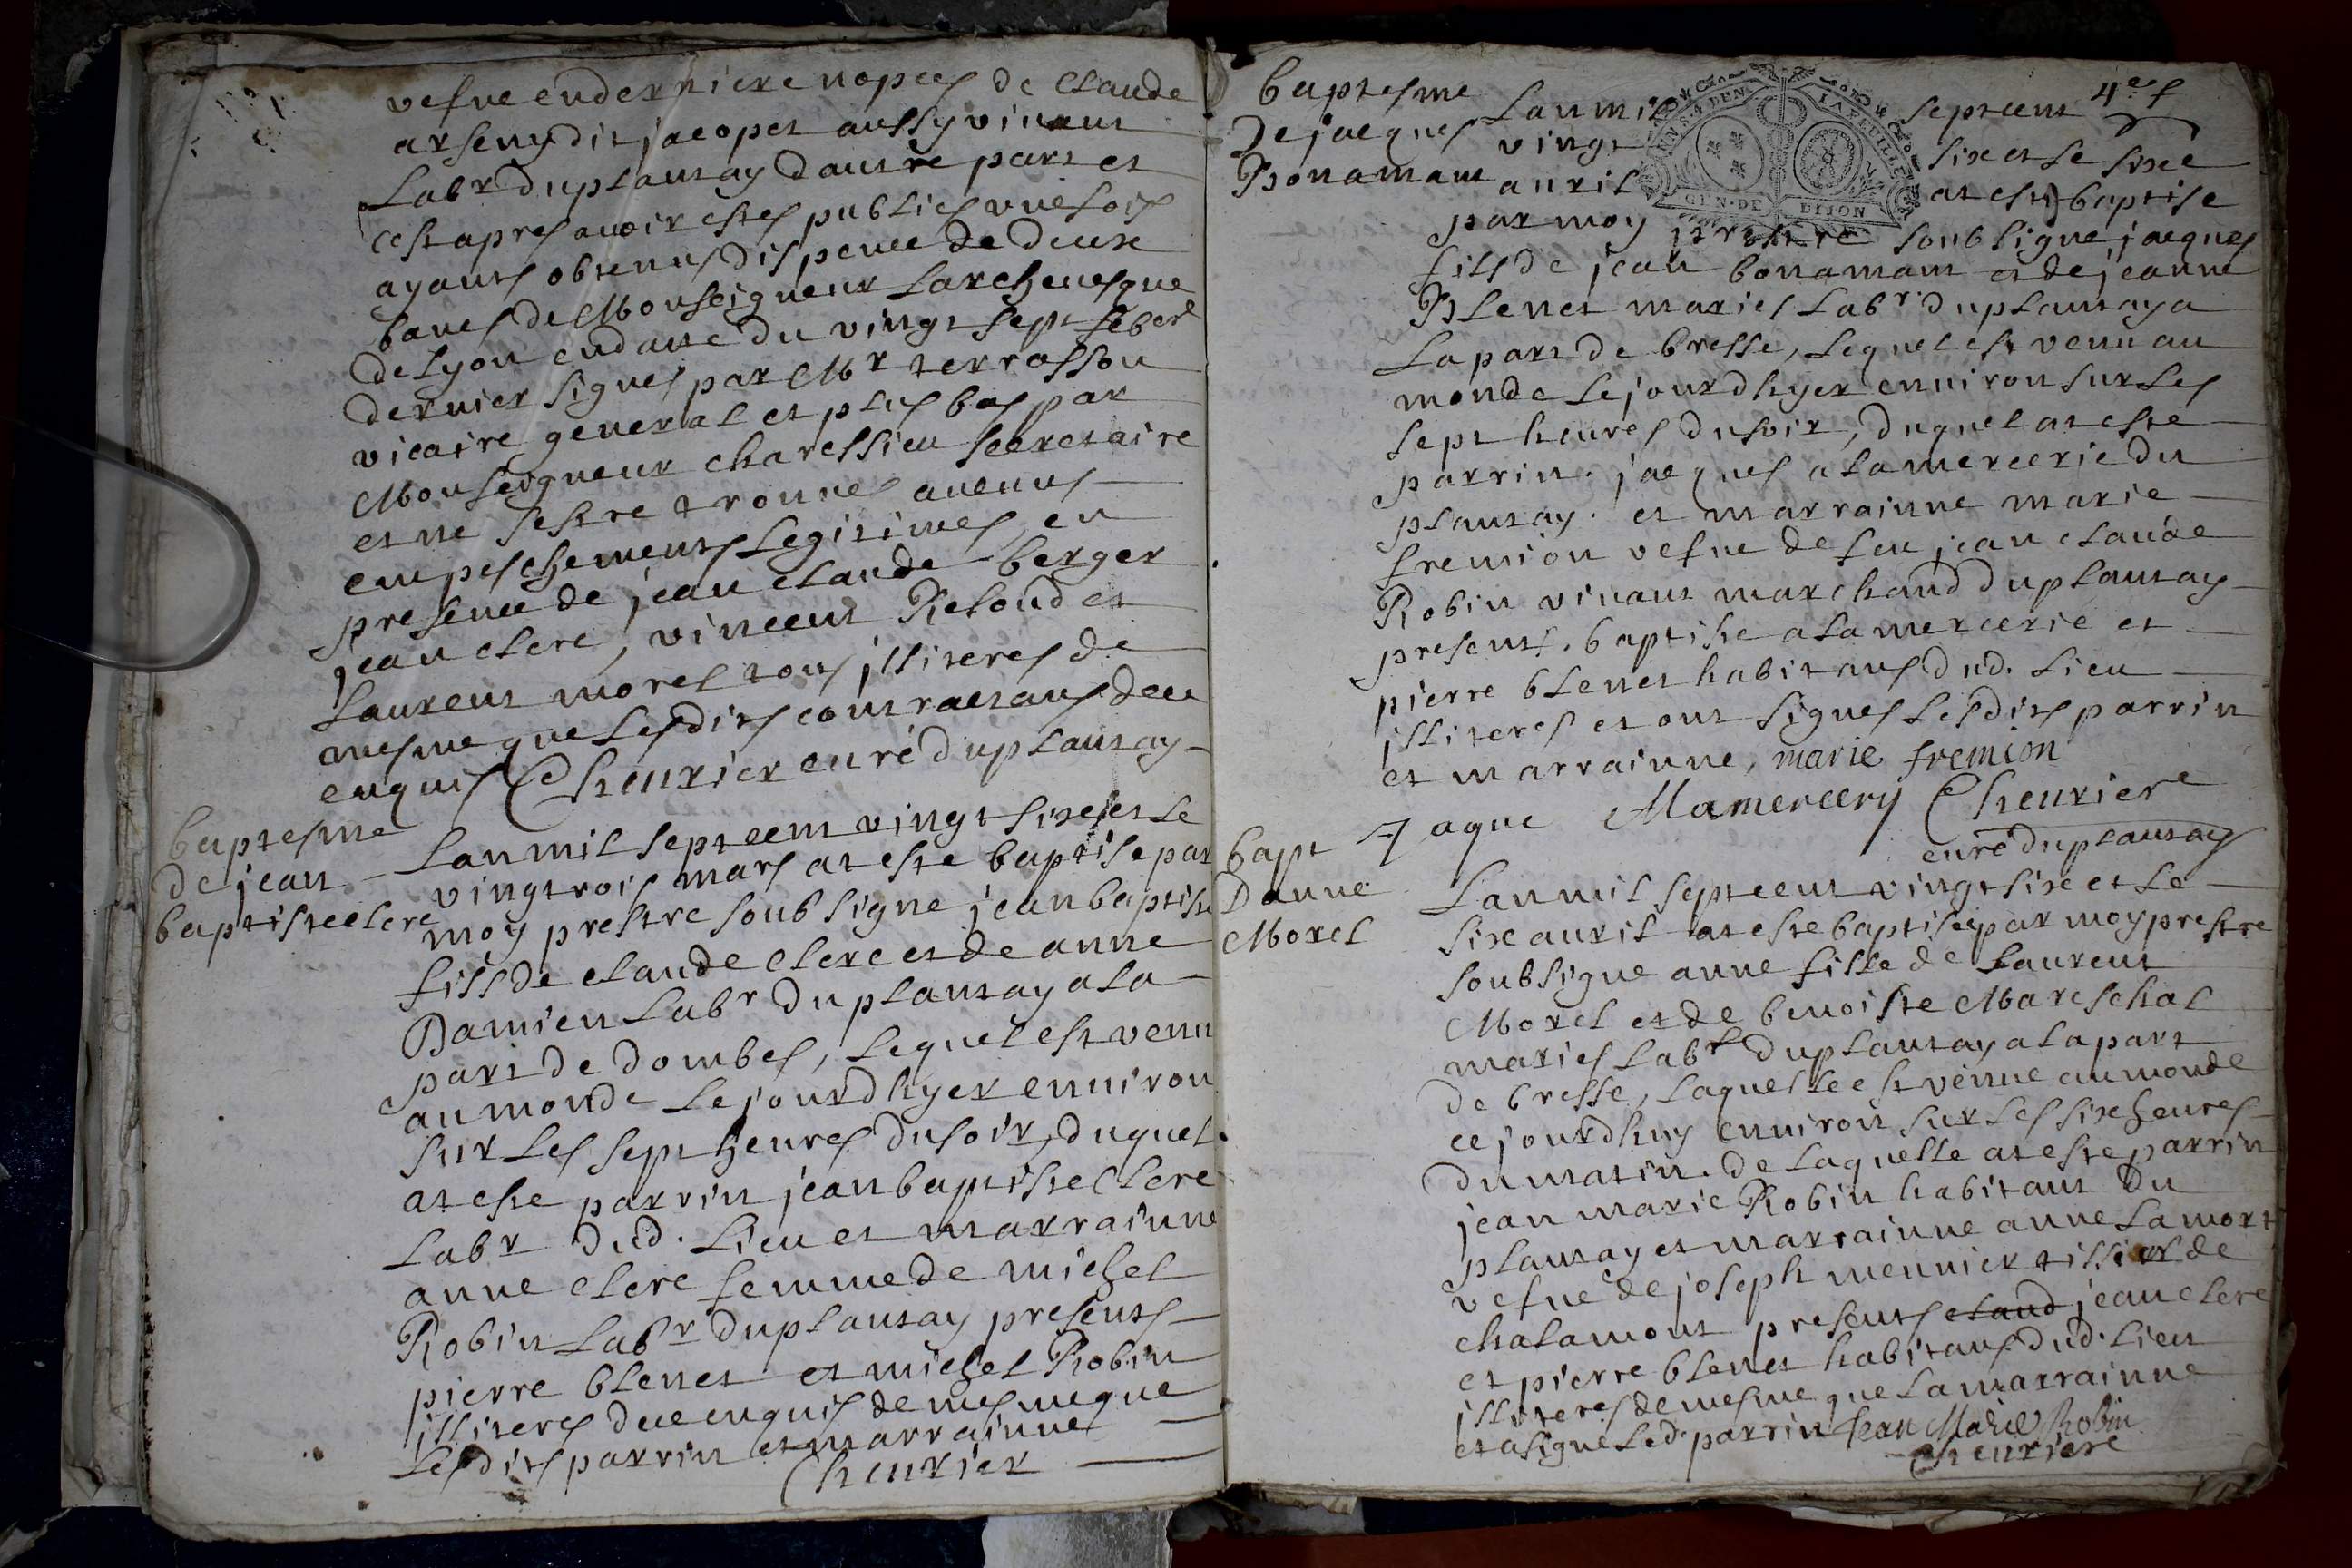 vefue en derniere nopces de Claude
arseny dit jacopet aussy vivant
Labr du plantay dautre part et
cest apres avoir estes publies une fois
ayants obtenus dispence de deux
bancs de Monseigneur Larchevesque
de Lyon en datte du vingt sept feber
dernier signes par Mr terrasson
vicaire general et plus bas par
Monseigneur charessieu secretaire
et ne sestre trouves aucuns
empeschements legitimes, en
presence de jean claude berger
jean clerc, vincent Reloud et
Laurent morel tous illiteres de
mesme que lesdits contractans deue
enquis Cheurier curé du plantay
baptesme
de jean
baptiste clerc
Lan mil sept cent vingt sixe et le
vingtrois mars at este baptise par
moy prestre soubsigne jean baptiste
fils de claude clerc et de anne
Damien Labr du plantay a la
part de dombes, lequel est venu
au monde le jourdhyer environ
sur les sept heures du soir, duquel
at este parrin jean baptiste Clerc
Labr dud. lieu et marrainne
anne clerc femme de michel
Robin Labr du plantay presents
pierre blenet et michel Robin
illiteres deue enquis de mesme que
lesdits parrin et marrainne
Cheurier
4e f
baptesme
de jacques
Bonamant
Lan mil sept cent
vingt sixe et le sixe
auril at esté baptise
par moy prestre soubsigne jacques
fils de jean bonamant et de jeanne
Blenet maries Labr du plantay a
la part de bresse, lequel est venu au
monde le jourdhyer environ sur les
sept heures du soir, duquel at este
parrin jacques alamercerie du
plantay. et marrainne marie
fremion vefue de feu jean claude
Robin vivant marchand du plantay
presents. baptiste alamercerie et
pierre blenet habitans dud. lieu
illiteres et ont signes lesdits parrin
et marrainne, marie fremion
Jaque Alamercery Cheuriere
curé du plantay
bapt
Danne
Morel
Lan mil sept cent vingt sixe et le
sixe auril at este baptisée par moy prestre
soubsigne anne fille de Laurent
Morel et de benoiste Mareschal
maries Labr du plantay a la part
de bresse, laquelle est venue au monde
ce jourdhuy environ sur les sixe heures
du matin. de laquelle at este parrin
jean marie Robin habitant du
plantay et marrainne anne Lamort
vefue de joseph meunier tissier de
chalamont presents claud jean clerc
et pierre blenet habitans dud. lieu
illiteres de mesme que la marrainne
et a signe led. parrin Jean Marie Robin
Cheuriere
GEN. DE DIJON
LA FEUILLE